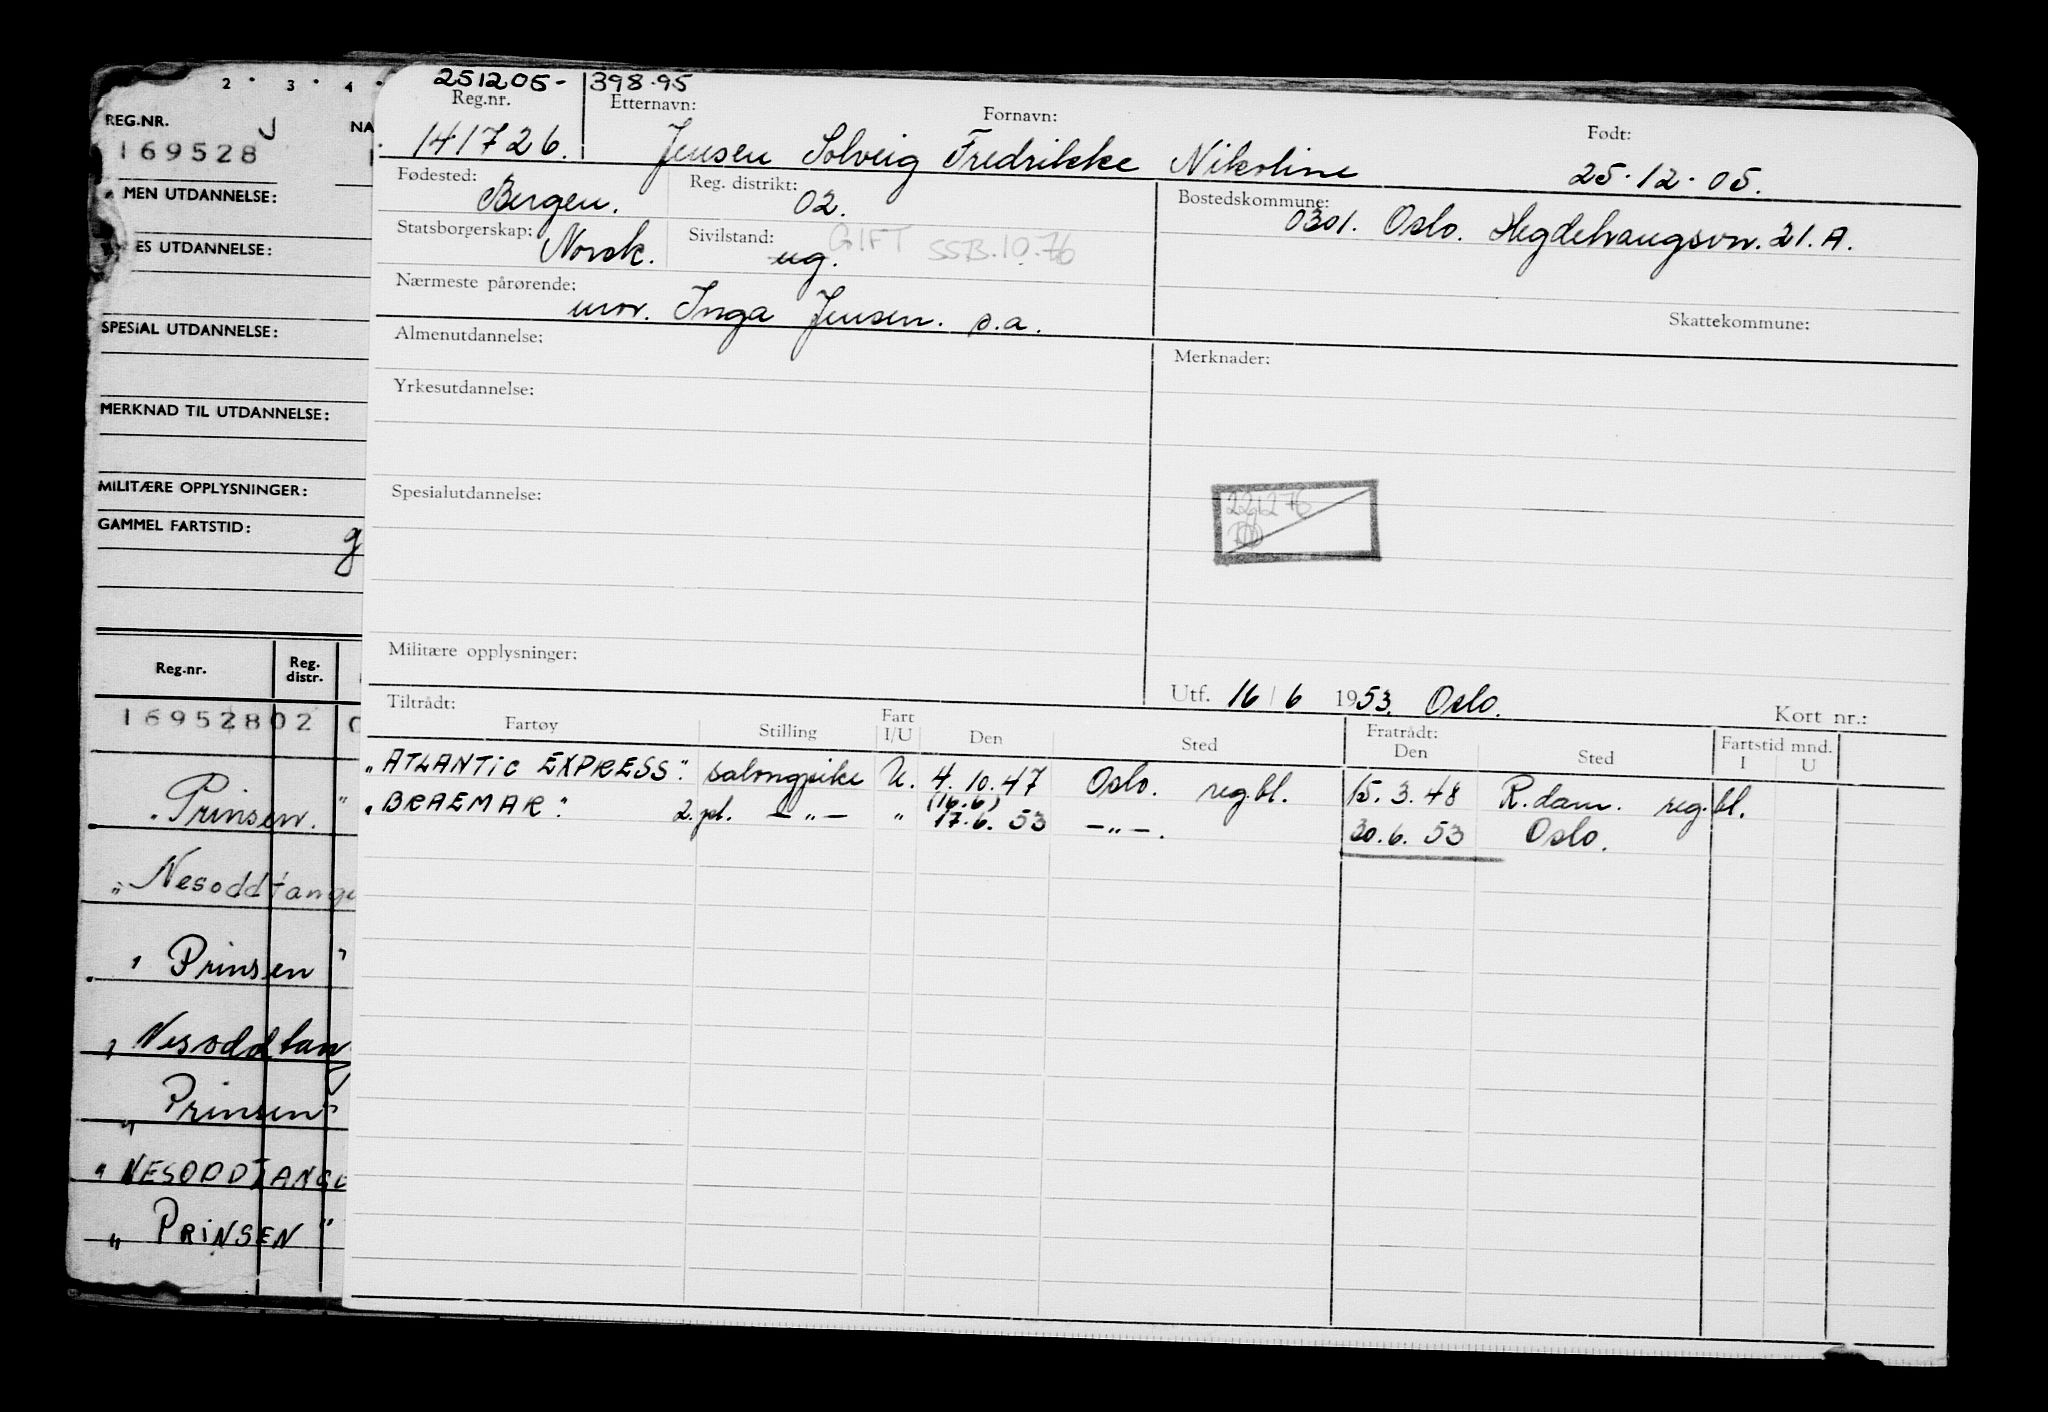 2 · 3 · 4 ·
REG.NR. J NA
169528
MEN UTDANNELSE:
ES UTDANNELSE:
SPESIAL UTDANNELSE:
MERKNAD TIL UTDANNELSE:
MILITÆRE OPPLYSNINGER:
GAMMEL FARTSTID: g
Reg.nr. Reg. distr.
169528 02
"Prinsen."
"Nesoddtange
"Prinsen"
"Nesoddtang
"Prinsen"
"NESODDTANGE
"PRINSEN"
251205- 398.95
Reg.nr. Etternavn: Fornavn: Født:
141726. Jensen Solveig Fredrikke Nikoline 25.12.05.
Fødested: Bergen. Reg. distrikt: 02. Bostedskommune: 0301. Oslo. Hegdehaugsvn. 21.A.
Statsborgerskap: Norsk. Sivilstand: ug. GIFT SSB.10.76
Nærmeste pårørende: mor. Inga Jensen. s.a.
Skattekommune:
Almenutdannelse: Merknader:
Yrkesutdannelse:
Spesialutdannelse: 221276
Militære opplysninger:
Utf. 16/6 1953. Oslo. Kort nr.:
Tiltrådt: Fratrådt:
Fartøy Stilling Fart I/U Den Sted Den Sted Fartstid mnd. I U
"ATLANTIC EXPRESS". salongpike U. 4.10.47 Oslo. reg.bl. 15.3.48 R.dam. reg.bl.
"BRAEMAR". 2.pl. -"- " (16.6) 17.6.53 -"-. 30.6.53 Oslo.